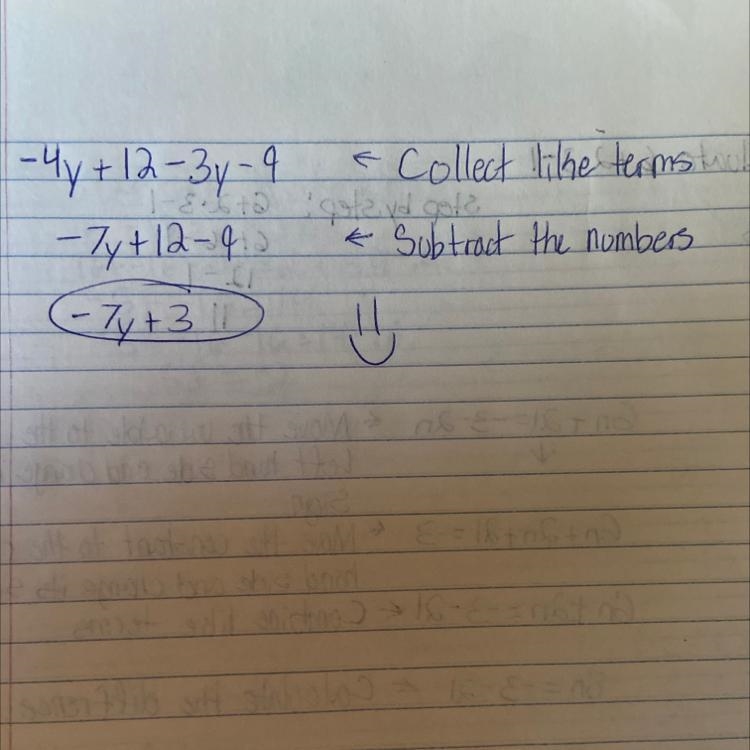 -4y+12-3y-9 ← Collect like terms
-7y+12-9 ← Subtract the numbers
-7y+3